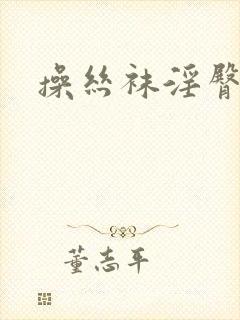 操丝袜淫臀
董志平